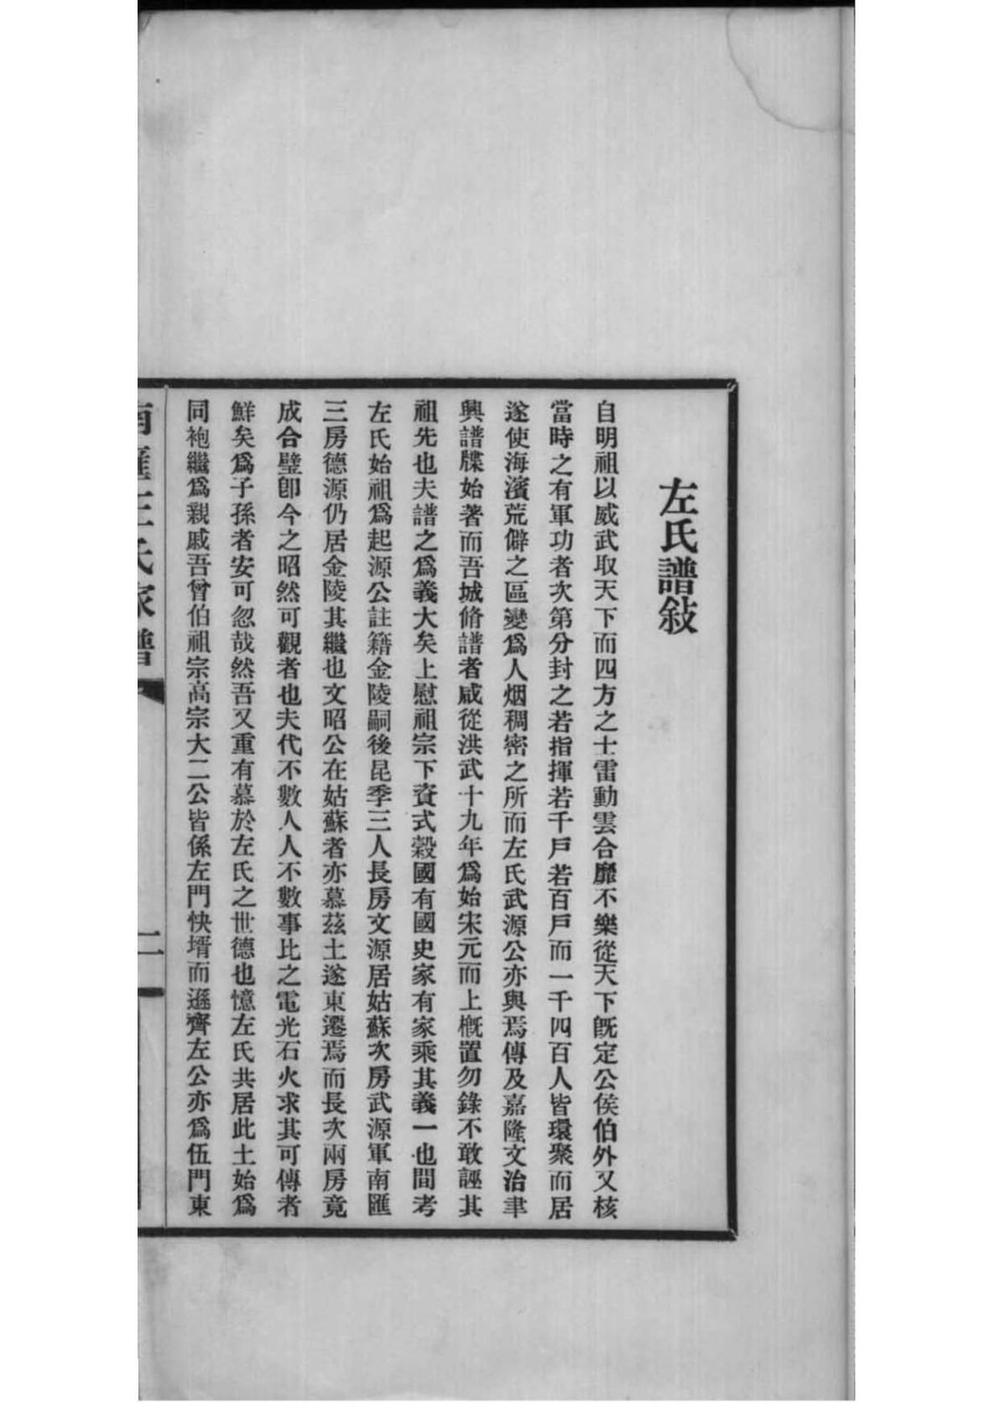 左氏譜敍
自明祖以威武取天下而四方之士雷動雲合靡不樂從天下旣定公侯伯外又核
當時之有軍功者次第分封之若指揮若千戶若百戶而一千四百人皆環聚而居
遂使海濱荒僻之區變爲人烟稠密之所而左氏武源公亦與焉傳及嘉隆文治聿
興譜牒始著而吾城脩譜者咸從洪武十九年爲始宋元而上槪置勿錄不敢誣其
祖先也夫譜之爲義大矣上慰祖宗下資式穀國有國史家有家乘其義一也間考
左氏始祖爲起源公註籍金陵嗣後昆季三人長房文源居姑蘇次房武源軍南匯
三房德源仍居金陵其繼也文昭公在姑蘇者亦慕茲土遂東遷焉而長次兩房竟
成合璧卽今之昭然可觀者也夫代不數人人不數事比之電光石火求其可傳者
鮮矣爲子孫者安可忽哉然吾又重有慕於左氏之世德也憶左氏共居此土始爲
同袍繼爲親戚吾曾伯祖宗高宗大二公皆係左門快壻而遜齊左公亦爲伍門東
南匯左氏家譜
二